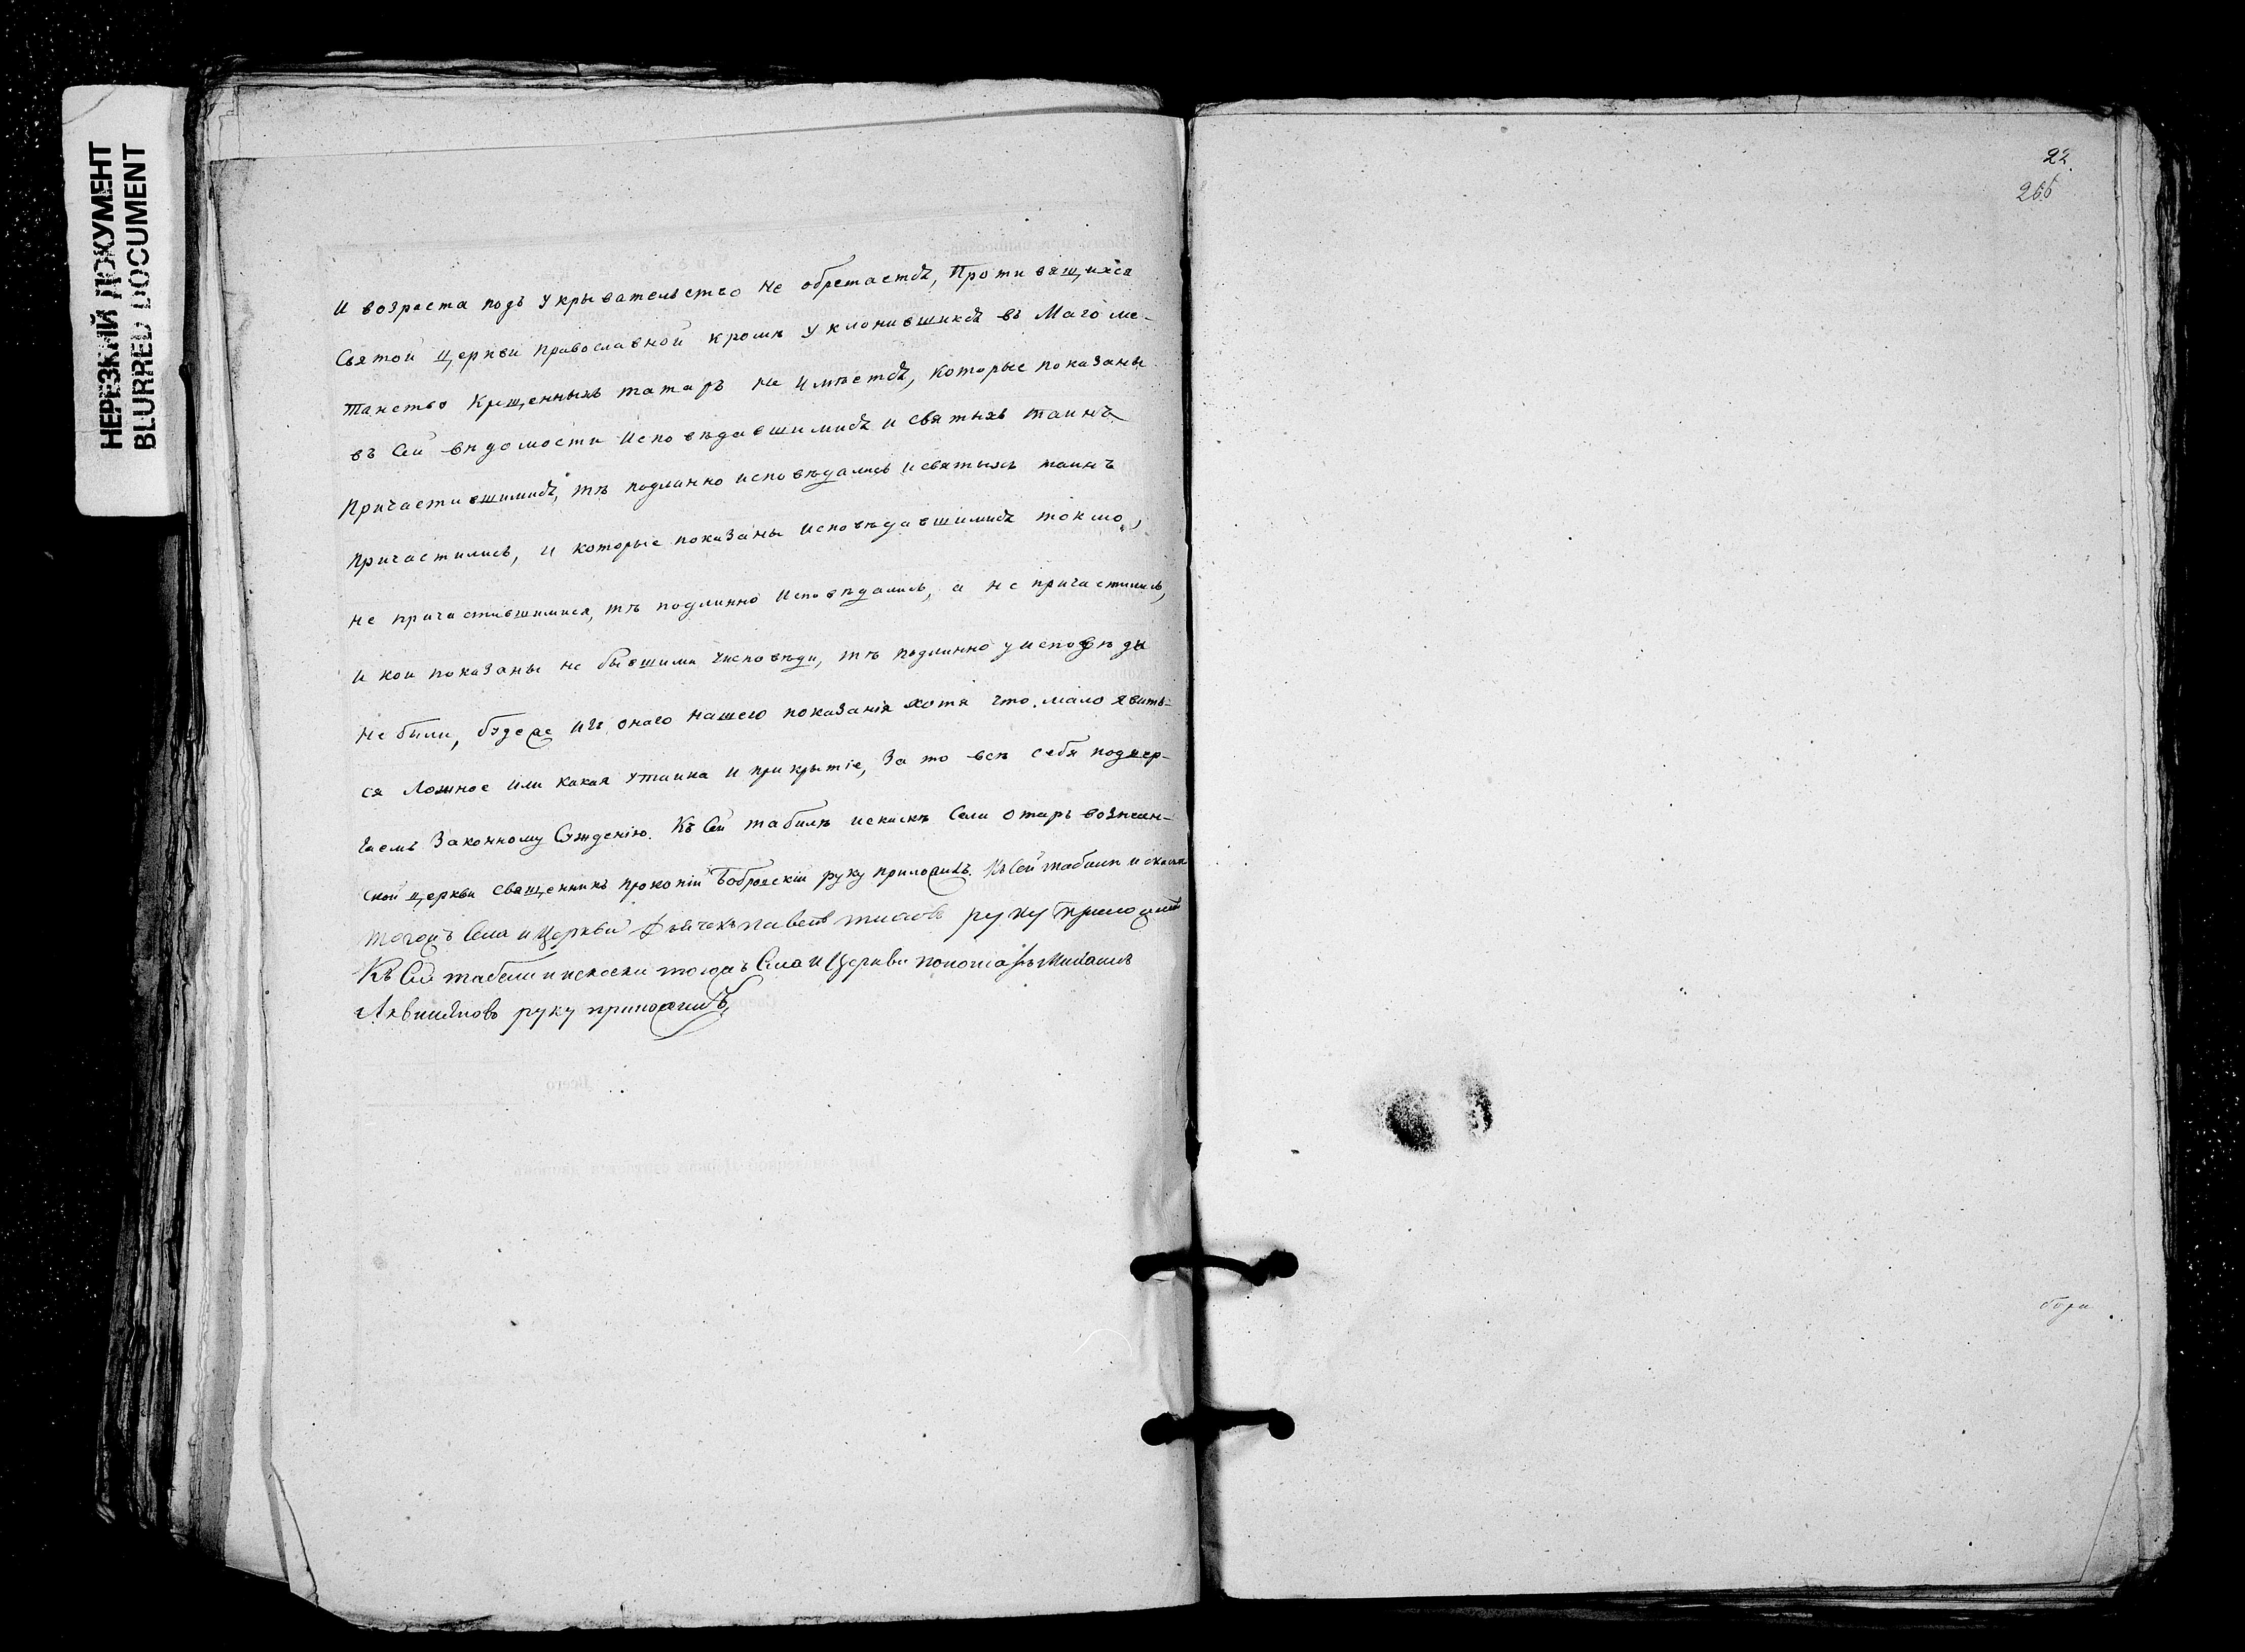 НЕРЕЗКИЙ ДОКУМЕНТ
BLURRED DOCUMENT
И возраста подъ укрывательство не обретается, Противящихся
Святой церкви православной кромѣ уклонившихся въ Магоме-
танство Крещенныхъ татаръ не имѣется, которые показаны
въ сей вѣдомости исповѣдавшимися и святыхъ таинъ
Причастившимися, тѣ подлинно исповѣдались и святыхъ таинъ
причастились, и которые показаны исповѣдавшимися токмо,
не причастившимися, тѣ подлинно исповѣдались, а не причастились,
и кои показаны не бывшими уисповѣди, тѣ подлинно уисповѣди
не были, будеже изъ онаго нашего показанія хотя что мало явить-
ся Ложное или какая утаика и прикрытіе, за то всѣ себя подвер-
гаемъ Законному Сужденію. Къ сей табилѣ искискѣ Села Отаръ вознесен-
ской церкви священникъ прокопій Бобровскій руку приложилъ. Къ сей табили
тогожъ Села и Церкви Дьячекъ павелъ руку приложилъ
Къ сей табели искоски тогожъ Села и Церкви пономарь Михаилъ
руку приложилъ
22
266